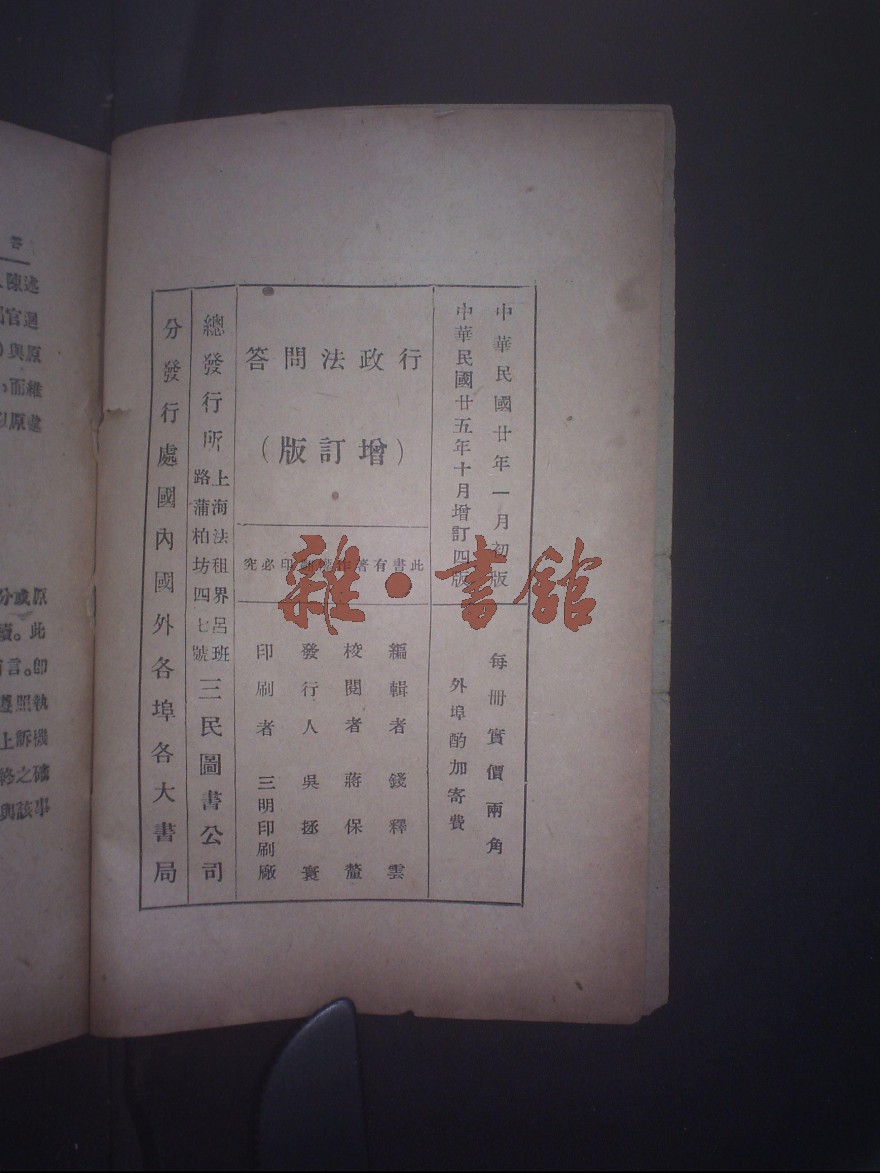 中華民國廿年一月初版
中華民國廿五年十月增訂四版
每冊實價兩角
外埠酌加寄費
行政法問答
（增訂版）
此書有著作權翻印必究
編輯者 錢釋雲
校閱者 蔣保釐
發行人 吳拯寰
印刷者 三明印刷廠
總發行所 上海法租界呂班路蒲柏坊四七號 三民圖書公司
分發行處國內國外各埠各大書局
雜·書館
答
陳述
原與
而維
原處
分或原
。此
言。即
遵照執
上訴機
終之確
與該事